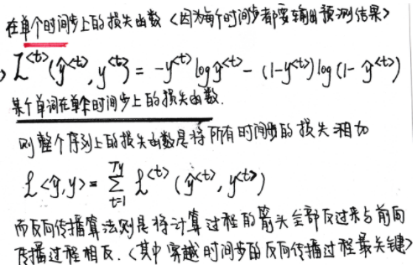 在单个时间步上的损失函数〈因为每个时间步都要输出预测结果〉
L^{<t>}(ŷ^{<t>}, y^{<t>}) = -y^{<t>} log ŷ^{<t>} - (1-y^{<t>}) log (1- ŷ^{<t>})
某个单词在单个时间步上的损失函数.
则整个序列上的损失函数是将所有时间步的损失相加
L<ŷ,y> = \sum_{t=1}^{Ty} L^{<t>} (ŷ^{<t>}, y^{<t>})
而反向传播算法则是将计算过程的箭头全部反过来与前向
传播过程相反.〈其中穿越时间步的反向传播过程最关键〉